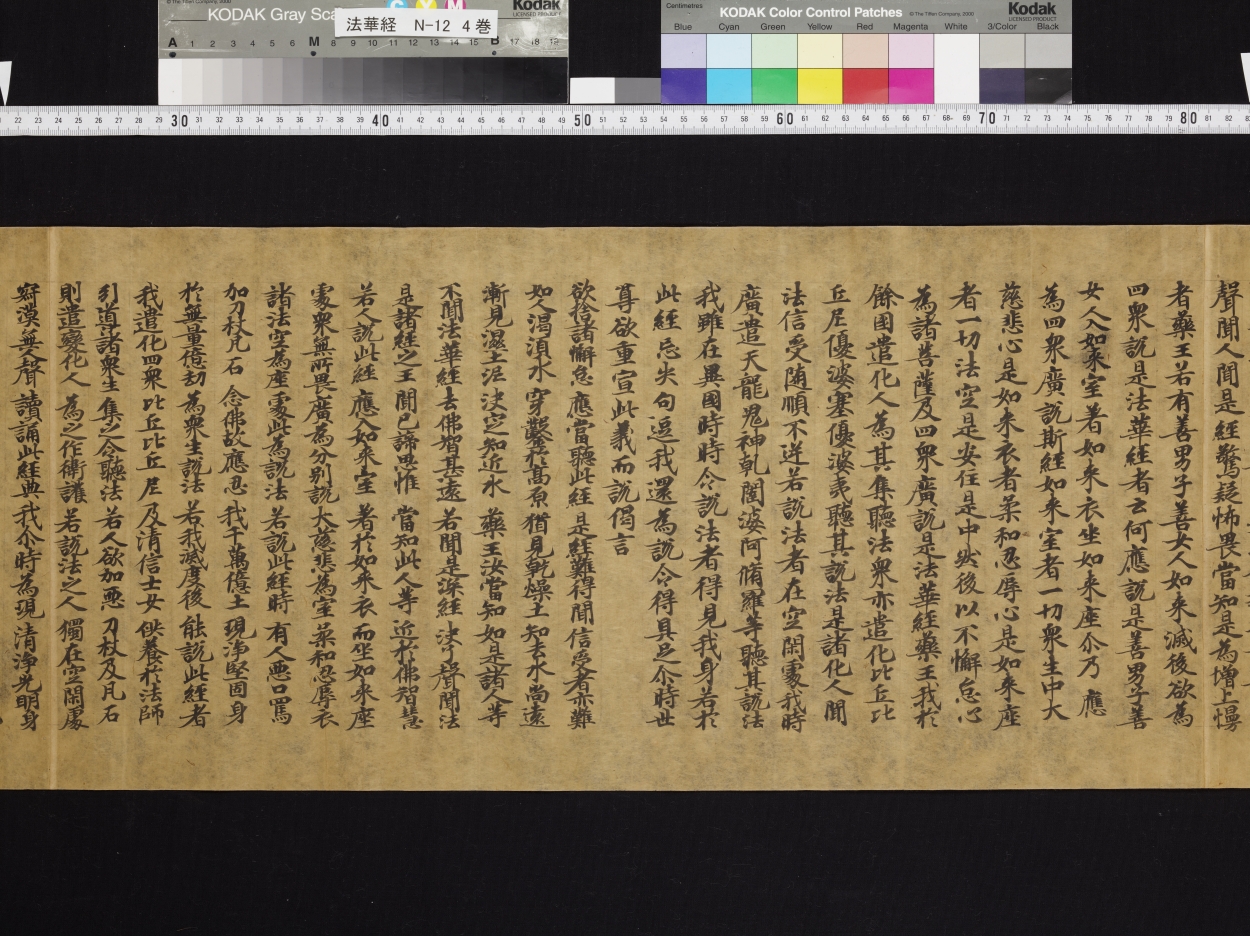 KODAK Gray Scale
法華経 N-12 4巻
Kodak
LICENSED PRODUCT
A 1 2 3 4 5 6 M 8 9 10 11 12 13 14 15 B 17 18 19
Centimetres
KODAK Color Control Patches
© The Tiffen Company, 2000
Kodak
LICENSED PRODUCT
Blue Cyan Green Yellow Red Magenta White 3/Color Black
22 23 24 25 26 27 28 29 30 31 32 33 34 35 36 37 38 39 40 41 42 43 44 45 46 47 48 49 50 51 52 53 54 55 56 57 58 59 60 61 62 63 64 65 66 67 68 69 70 71 72 73 74 75 76 77 78 79 80 81 82
聲聞人聞是經驚疑怖畏當知是為增上慢
者藥王若有善男子善女人如來滅後欲為
四衆說是法華經者云何應說是善男子善
女人入如來室著如來衣坐如來座尒乃應
為四衆廣說斯經如來室者一切衆生中大
慈悲心是如來衣者柔和忍辱心是如來座
者一切法空是安住是中然後以不懈怠心
為諸菩薩及四衆廣說是法華經藥王我於
餘國遣化人為其集聽法衆亦遣化比丘比
丘尼優婆塞優婆夷聽其說法是諸化人聞
法信受隨順不逆若說法者在空閑處我時
廣遣天龍鬼神乾闥婆阿脩羅等聽其說法
我雖在異國時時令說法者得見我身若於
此經忘失句逗我還為說令得具足尒時世
尊欲重宣此義而說偈言
欲捨諸懈怠 應當聽此經 是經難得聞 信受者亦難
如人渴須水 穿鑿於高原 猶見乾燥土 知去水尚遠
漸見濕土泥 决定知近水 藥王汝當知 如是諸人等
不聞法華經 去佛智甚遠 若聞是深經 决了聲聞法
是諸經之王 聞已諦思惟 當知此人等 近於佛智慧
若人說此經 應入如來室 著於如來衣 而坐如來座
處衆無所畏 廣為分別說 大慈悲為室 柔和忍辱衣
諸法空為座 處此為說法 若說此經時 有人惡口罵
加刀杖瓦石 念佛故應忍 我千萬億土 現淨堅固身
於無量億劫 為衆生說法 若我滅度後 能說此經者
我遣化四衆 比丘比丘尼 及清信士女 供養於法師
引導諸衆生 集之令聽法 若人欲加惡 刀杖及瓦石
則遣變化人 為之作衛護 若說法之人 獨在空閑處
寂漠無人聲 讀誦此經典 我尒時為現 清淨光明身